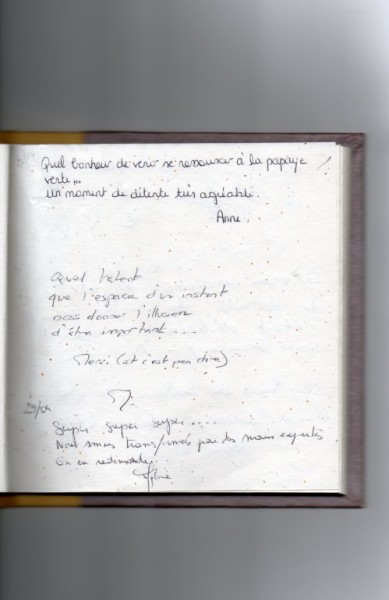 Quel bonheur de venir se ressourcer à la papaye
verte...
un moment de détente très agréable.
Anne.
Quel talent
que l'espace d'un instant
nous donner l'illusion
d'être important...
Merci (et c'est peu dire)
29/04
Super super super....
Nous sommes par des mains expertes
On en redemande